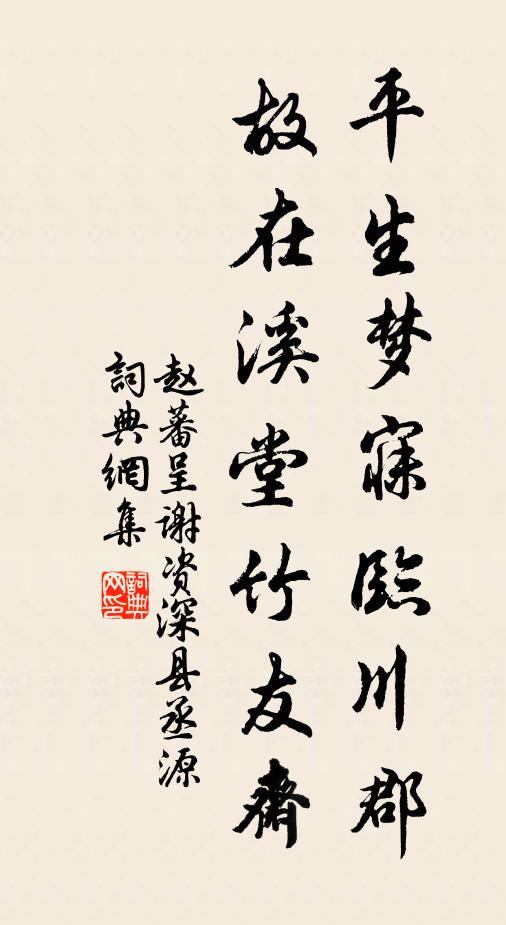 平生梦寐臨川郡
故在溪堂竹友齋
赵蕃呈谢资深县丞源
詞典網集
詞典网印